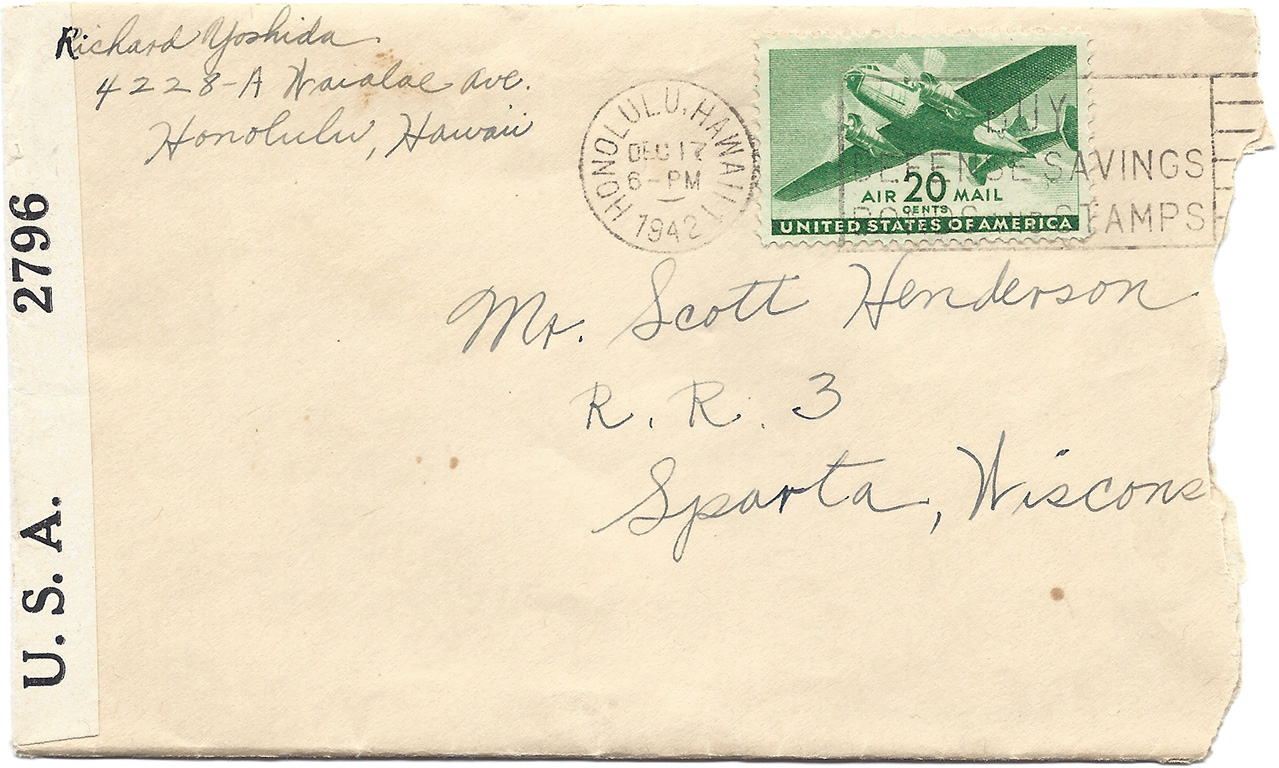 Richard Yoshida
4228-A Waialae Ave.
Honolulu, Hawaii
HONOLULU, HAWAII
DEC 17
6-PM
1942
BUY
DEFENSE SAVINGS
BONDS AND STAMPS
AIR 20 MAIL
CENTS
UNITED STATES OF AMERICA
Mr. Scott Henderson
R. R. 3
Sparta, Wiscons
U. S. A. 2796